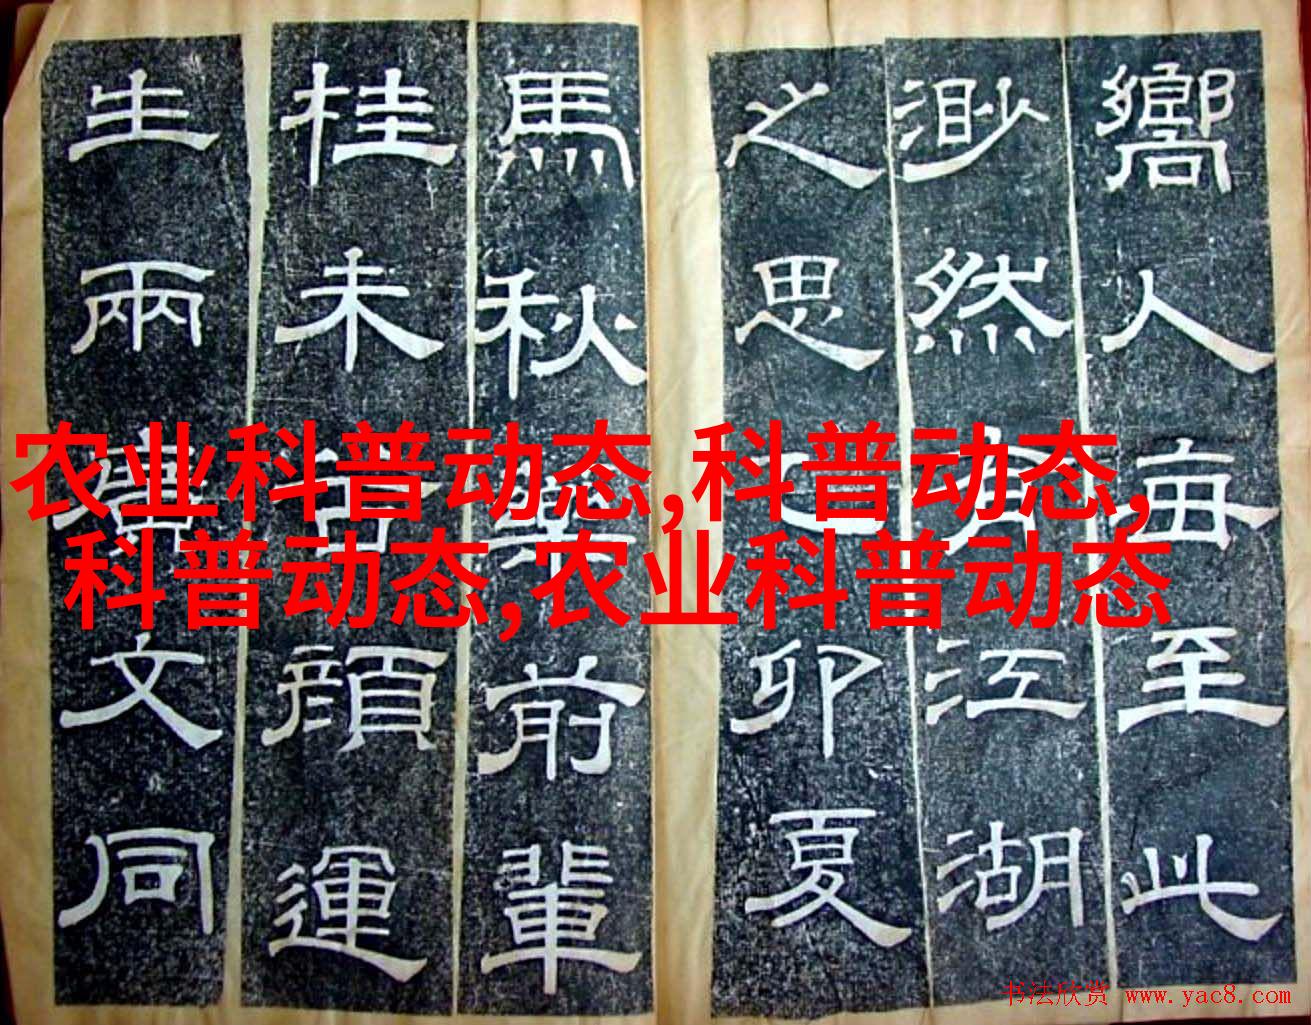 嚮人每至此
渺然有江湖
之思卯夏
馬秋藥前輩
桂未谷顏運
生兩廣文同
农业科普动态,科普动态,
科普动态,农业科普动态
书法欣赏 www.yac8.com